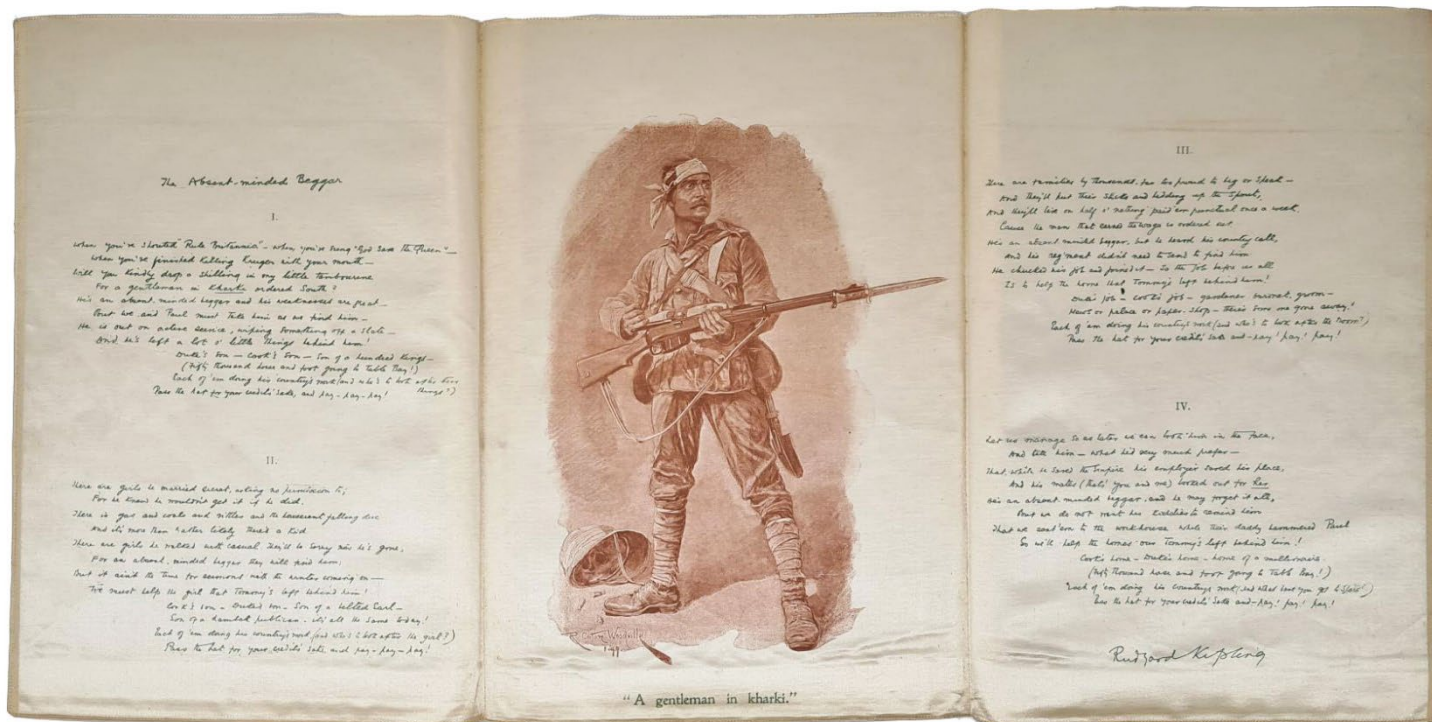 The Absent-minded Beggar
I.
When you've shouted "Rule Britannia" – when you've sung "God Save the Queen" –
When you've finished killing Kruger with your mouth –
Will you kindly drop a shilling in my little tambourine
For a gentleman in Kharki ordered South?
He's an absent-minded beggar and his weaknesses are great –
But we and Paul must take him as we find him –
He is out on active service, wiping something off a slate –
And he's left a lot o' little things behind him!
Duke's son – Cook's son – Son of a hundred Kings –
(Fifty thousand horse and foot going to Table Bay!)
Each of 'em doing his country's work (and who's to look after their
things?)
Pass the hat for your credit's sake, and pay – pay – pay!
II.
There are girls he married secret, asking no permission to;
For he knew he wouldn't get it if he did.
There is gas and coals and vittles and the house-rent falling due
And it's more than rather likely there's a kid.
There are girls he walked with casual they'll be sorry now he's gone,
For an absent-minded beggar they will find him;
But it ain't the time for sermons with the winter coming on –
We must help the girl that Tommy's left behind him!
Cook's son – Duke's son – Son of a belted Earl –
Son of a Lambeth publican – it's all the same today!
Each of 'em doing his country's work (and who's to look after the girl?)
Pass the hat for your credit's sake and pay – pay – pay!
"A gentleman in kharki."
III.
There are families by thousands, far too proud to beg or speak –
And they'll put their sticks and bedding up the spout,
And they'll live on half o' nothing paid 'em punctual once a week,
'Cause the man that earned the wage is ordered out
He's an absent-minded beggar, but he heard his country call,
And his reg'ment didn't need to send to find him
He chucked his job and joined it – So the job before us all
Is to help the home that Tommy's left behind him!
Duke's job – Cook's job – gardener, baronet, groom –
Mews or palace or paper-shop – there's some one gone away!
Each of 'em doing his country's work (and who's to look after the room?)
Pass the hat for your credit's sake and – pay! pay! pay!
IV.
Let us manage so as later we can look him in the face,
And tell him – what he'd very much prefer –
That, while he saved the Empire his employer saved his place,
And his mates (that's you and me) looked out for her
He's an absent-minded beggar, and he may forget it all,
But we do not want his kiddies to remind him
That we sent 'em to the workhouse while their daddy hammered Paul
So we'll help the homes our Tommy's left behind him!
Cook's home – Duke's home – home of a millionaire.
(Fifty thousand horse and foot going to Table Bay!)
Each of 'em doing his country's work (and what have you got to spare?)
Pass the hat for your credit's sake and – pay! pay! pay!
Rudyard Kipling